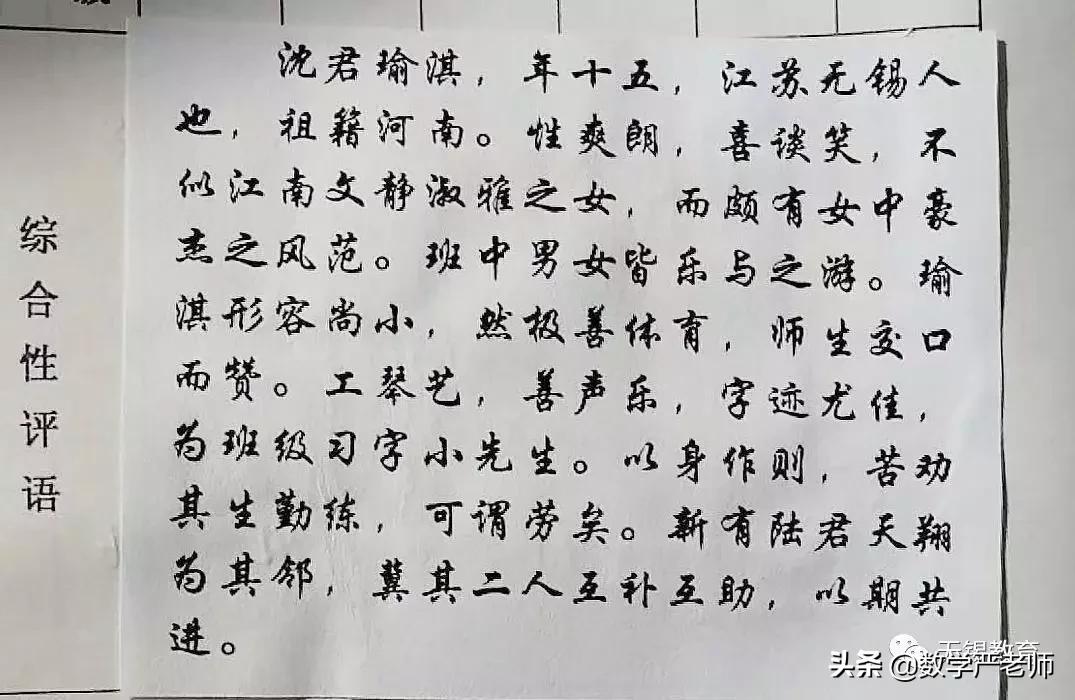 综合性评语
沈君瑜淇，年十五，江苏无锡人
也，祖籍河南。性爽朗，喜谈笑，不
似江南文静淑雅之女，而颇有女中豪
杰之风范。班中男女皆乐与之游。瑜
淇形容尚小，然极善体育，师生交口
而赞。工琴艺，善声乐，字迹尤佳，
为班级习字小先生。以身作则，苦劝
其生勤练，可谓劳矣。新有陆君天翔
为其邻，冀其二人互补互助，以期共
进。
无锡教育
头条 @数学严老师